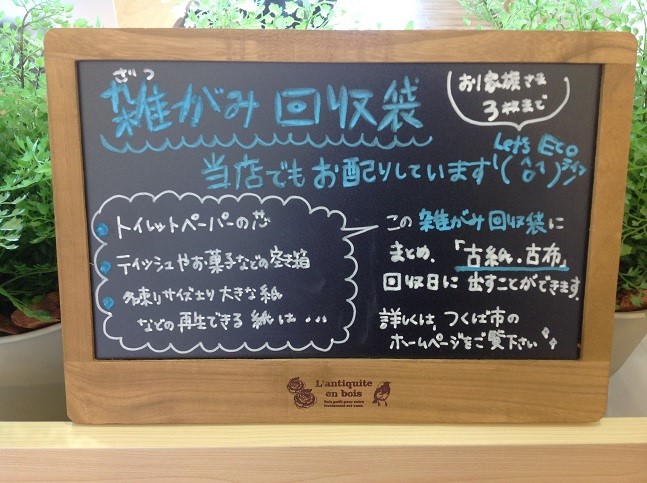 ざつ
雑がみ 回収袋
お1家族さま
3枚まで
当店でもお配りしています!
Let's Eco
ライフ
トイレットペーパーの芯
ティッシュやお菓子などの空き箱
名刺サイズより大きな紙
などの再生できる紙は...
この 雑がみ回収袋に
まとめ、「古紙・古布」
回収日に 出すことができます。
詳しくは、つくば市の
ホームページをご覧下さい
L'antiquite
en bois